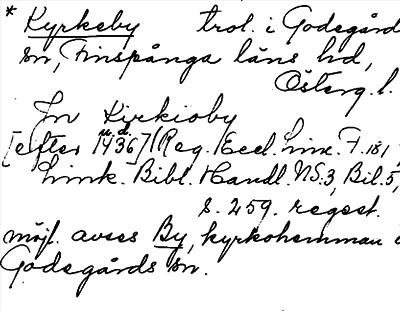 * Kyrkeby trol. i Godegård
sn, Finspånga läns hd,
Österg. l.
Jn Kirkioby
u. d.
[efter 1436] (Reg. Eccl. Linc. F. 181,
Link. Bibl. Handl. NS.3, Bil. 5,
s. 259. regest.
möjl. avses By, kyrkohemman i
Godegårds sn.